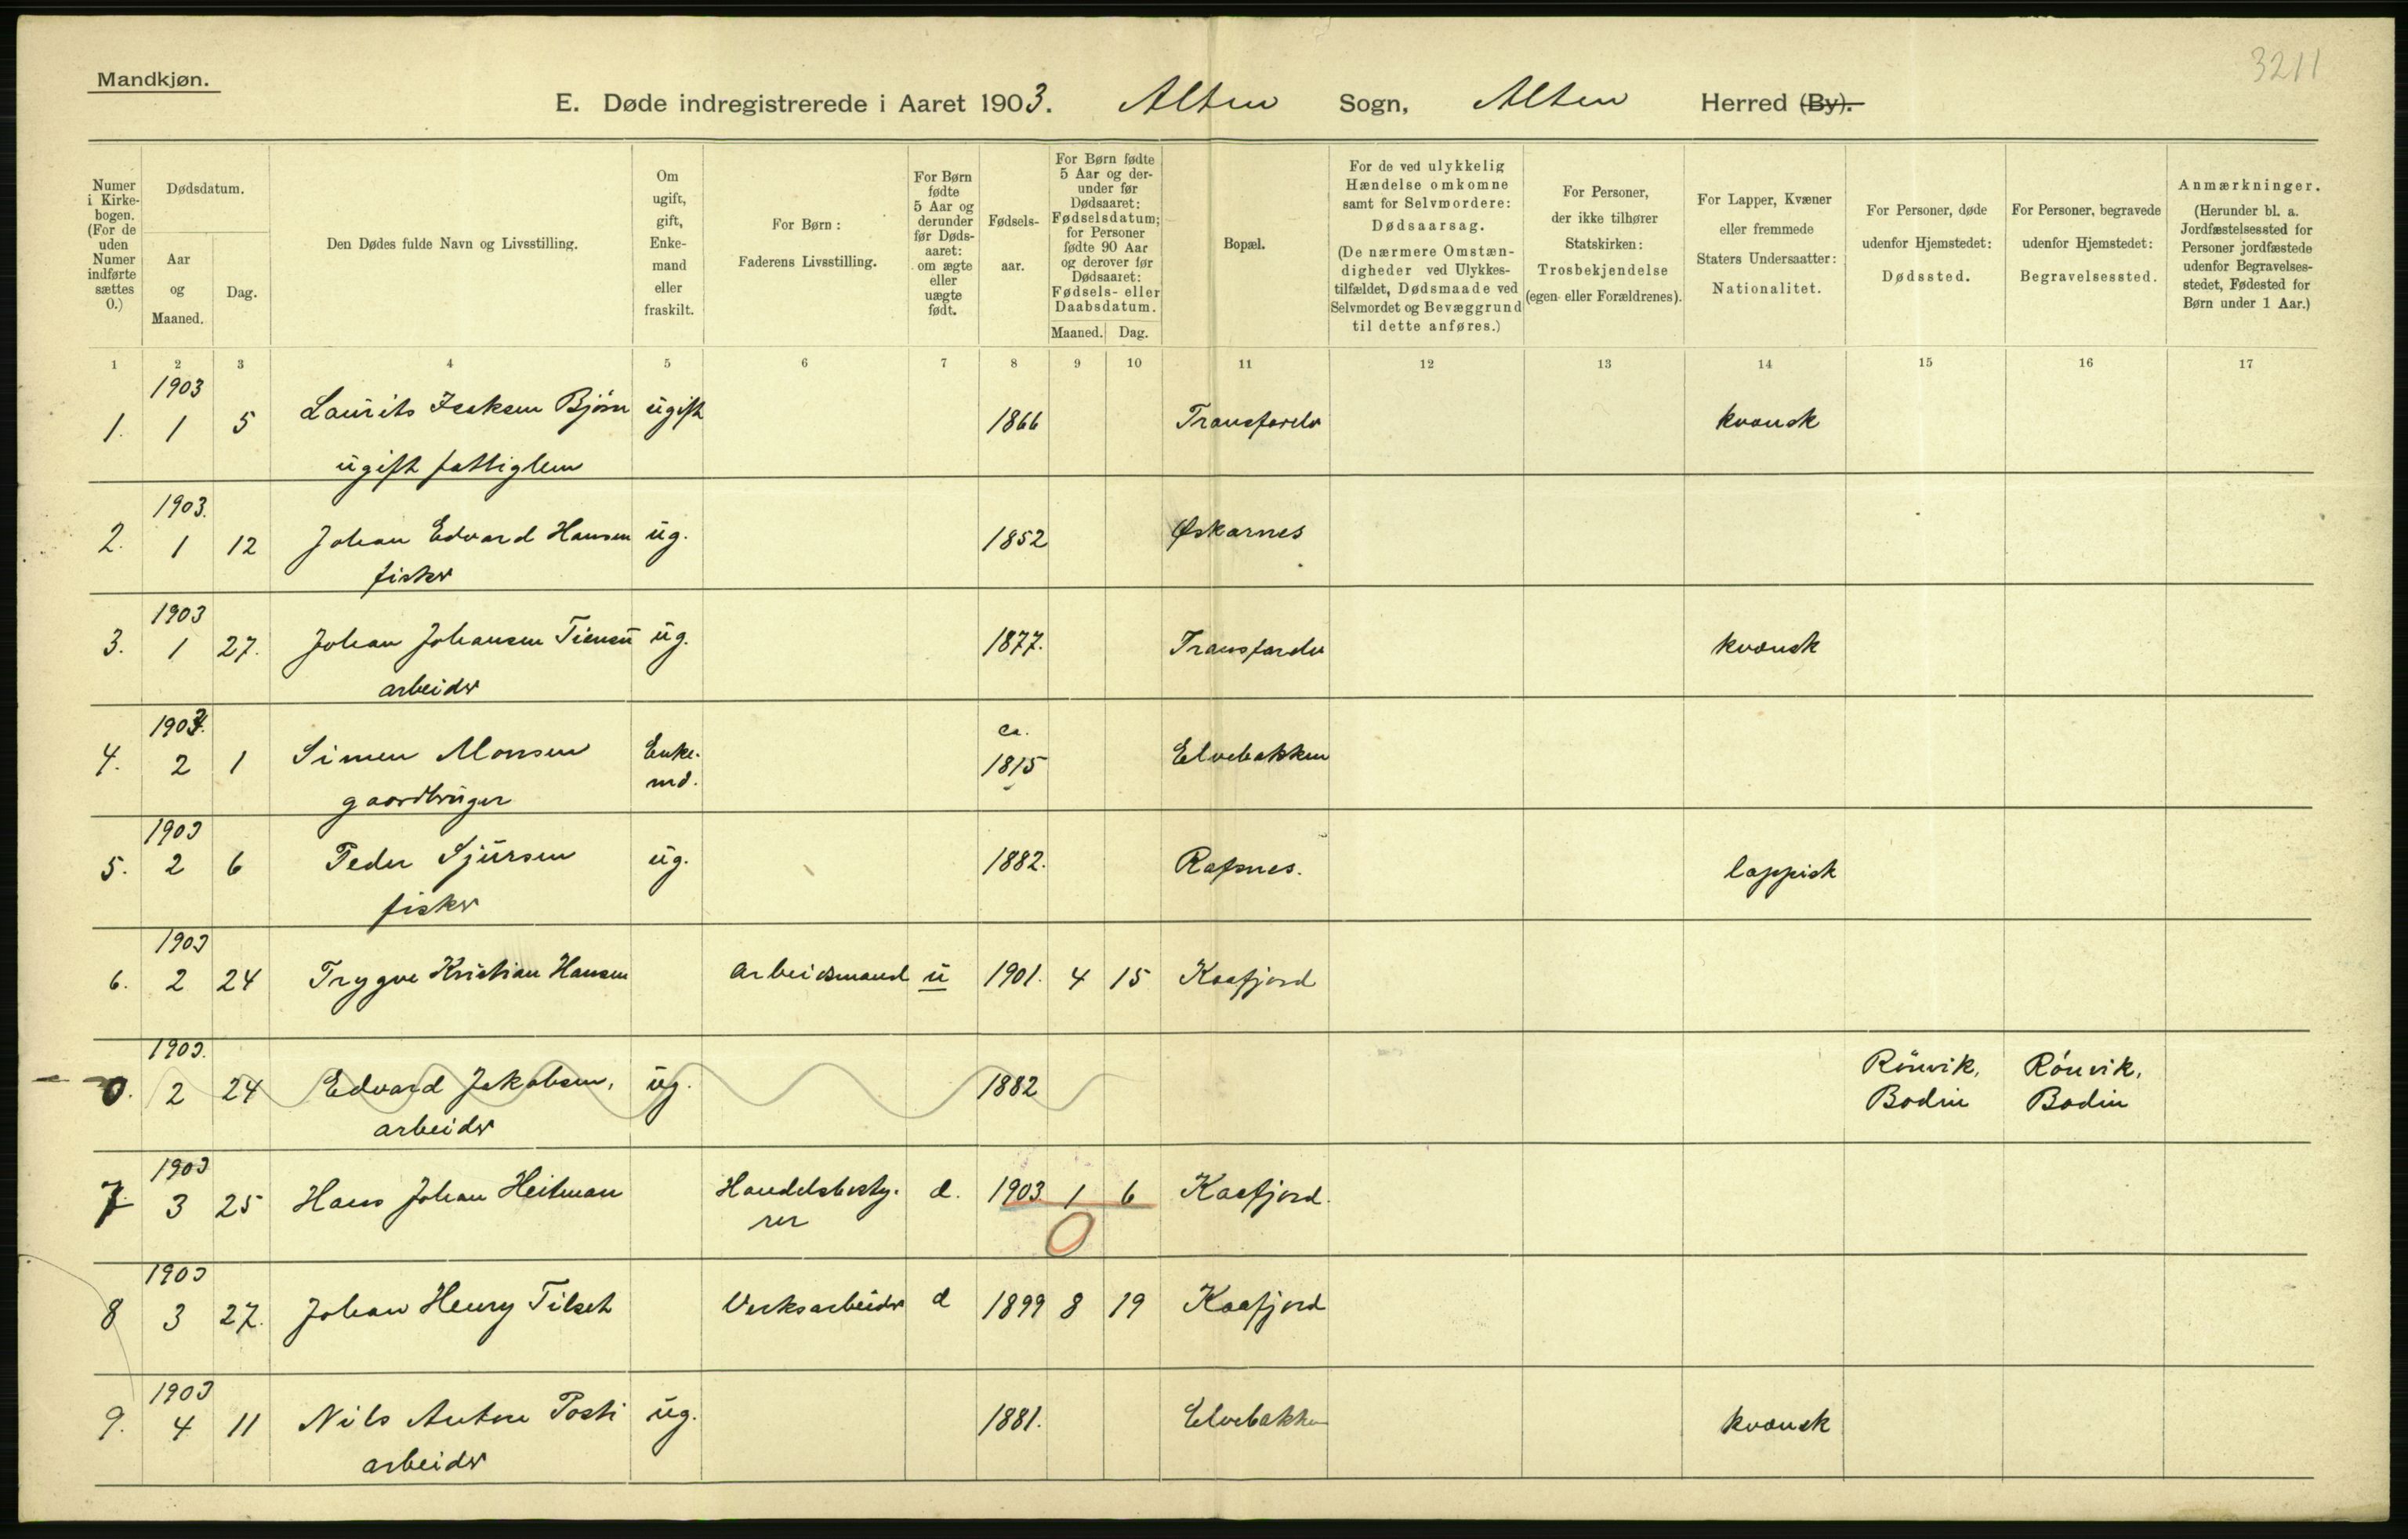 3211
Mandkjøn.
E. Døde indregistrerede i Aaret 1903. Alten Sogn, Alten Herred (By).
Numer i Kirke-bogen. (For de uden Numer indførte sættes 0.)
Dødsdatum.
Aar og Maaned.
Dag.
Den Dødes fulde Navn og Livsstilling.
Om ugift, gift, Enke-mand eller fraskilt.
For Børn: Faderens Livsstilling.
For Børn fødte 5 Aar og derunder før Døds-aaret: om ægte eller uægte født.
Fødsels-aar.
For Børn fødte 5 Aar og der-under før Dødsaaret: Fødselsdatum; for Personer fødte 90 Aar og derover før Dødsaaret: Fødsels- eller Daabsdatum.
Maaned. Dag.
Bopæl.
For de ved ulykkelig Hændelse omkomne samt for Selvmordere: Dødsaarsag. (De nærmere Omstæn-digheder ved Ulykkes-tilfældet, Dødsmaade ved Selvmordet og Bevæggrund til dette anføres.)
For Personer, der ikke tilhører Statskirken: Trosbekjendelse (egen eller Forældrenes).
For Lapper, Kvæner eller fremmede Staters Undersaatter: Nationalitet.
For Personer, døde udenfor Hjemstedet: Dødssted.
For Personer, begravede udenfor Hjemstedet: Begravelsessted.
Anmærkninger. (Herunder bl. a. Jordfæstelsessted for Personer jordfæstede udenfor Begravelses-stedet, Fødested for Børn under 1 Aar.)
1 2 3 4 5 6 7 8 9 10 11 12 13 14 15 16 17
1903
1. 1 5 Laurits Isaksen Bjørn ugift 1866 Transfarelv kvænsk
ugift fattiglem
1903.
2. 1 12 Johan Edvard Hansen ug. 1852 Øskarnes
fisker
1903
3. 1 27. Johan Johansen Tiensu ug. 1877. Transfarelv kvænsk
arbeider
1903. ca.
4. 2 1 Simen Monsen Enke-md. 1815 Elvebakken
gaardbruger
1903
5. 2 6 Peder Sjursen ug. 1882. Rafsnes. lappisk
fisker
1903
6. 2 24 Trygve Kristian Hansen Arbeidsmand u 1901. 4 15 Kaafjord
1903.
0. 2 24 Edvard Jakobsen, ug. 1882 Rönvik, Bodin Rönvik, Bodin
arbeider
1903
7 3 25 Hans Johan Heitman Handelsbesty-rer d. 1903 1 6 Kaafjord.
0
1903
8 3 27. Johan Henry Tilset Verksarbeider d 1899 8 19 Kaafjord
1903
9. 4 11 Nils Anton Posti ug. 1881. Elvebakken kvænsk
arbeider